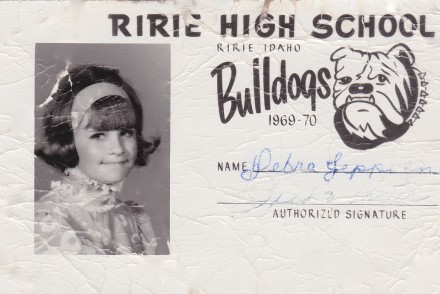 RIRIE HIGH SCHOOL
RIRIE IDAHO
Bulldogs
1969-70
NAME Debra Leppien
AUTHORIZED SIGNATURE